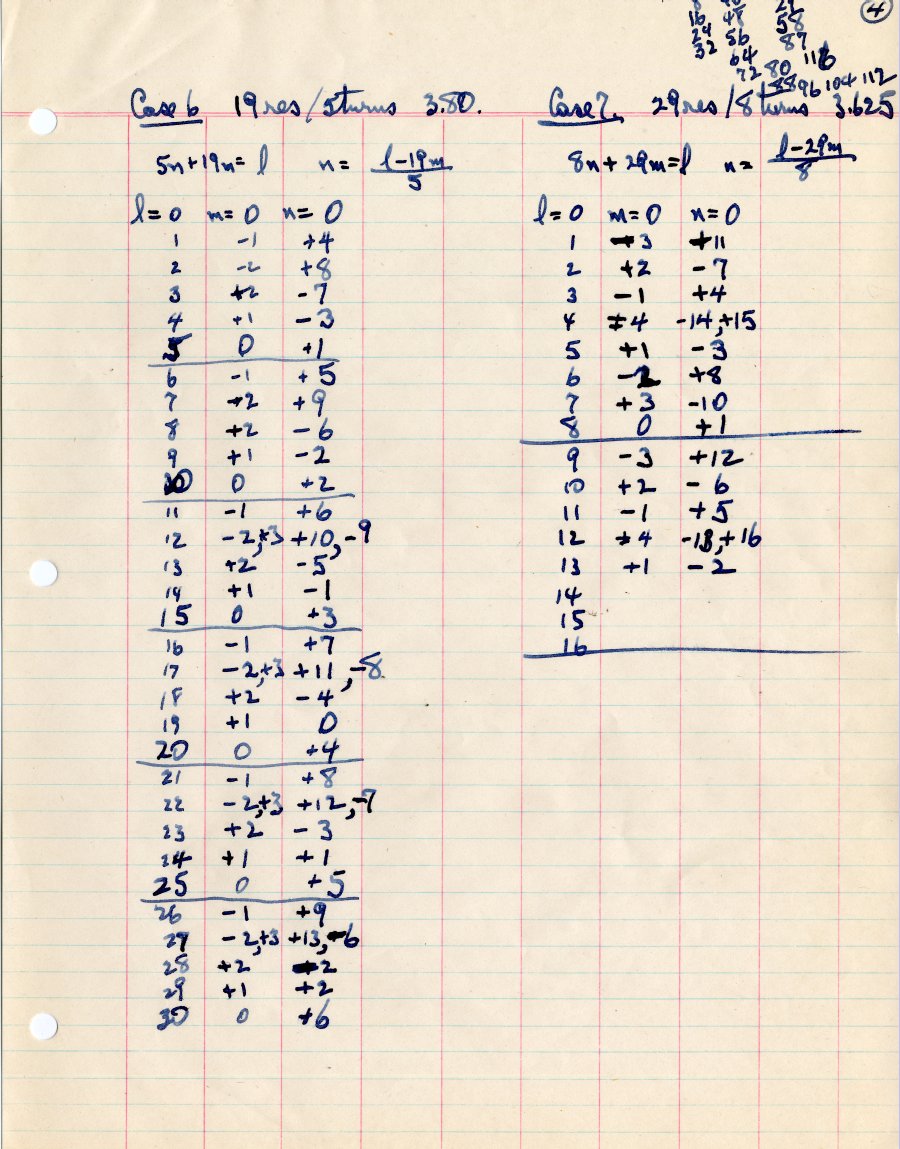 8 40 29
16 48 58
24 56 87
32 64 116
72 80
88 96 104 112
4
Case 6 19 res / 5 turns 3.80.
5n + 19m = l n = l - 19m / 5
l = 0 m = 0 n = 0
1 -1 +4
2 -2 +8
3 +2 -7
4 +1 -3
5 0 +1
6 -1 +5
7 +2 +9
8 +2 -6
9 +1 -2
10 0 +2
11 -1 +6
12 -2,+3 +10,-9
13 +2 -5
14 +1 -1
15 0 +3
16 -1 +7
17 -2,+3 +11,-8
18 +2 -4
19 +1 0
20 0 +4
21 -1 +8
22 -2,+3 +12,-7
23 +2 -3
24 +1 +1
25 0 +5
26 -1 +9
27 -2,+3 +13,-6
28 +2 -2
29 +1 +2
30 0 +6
Case 7. 29 res / 8 turns 3.625
8n + 29m = l n = l - 29m / 8
l = 0 m = 0 n = 0
1 -3 +11
2 +2 -7
3 -1 +4
4 ±4 -14,+15
5 +1 -3
6 -2 +8
7 +3 -10
8 0 +1
9 -3 +12
10 +2 -6
11 -1 +5
12 ±4 -13,+16
13 +1 -2
14
15
16